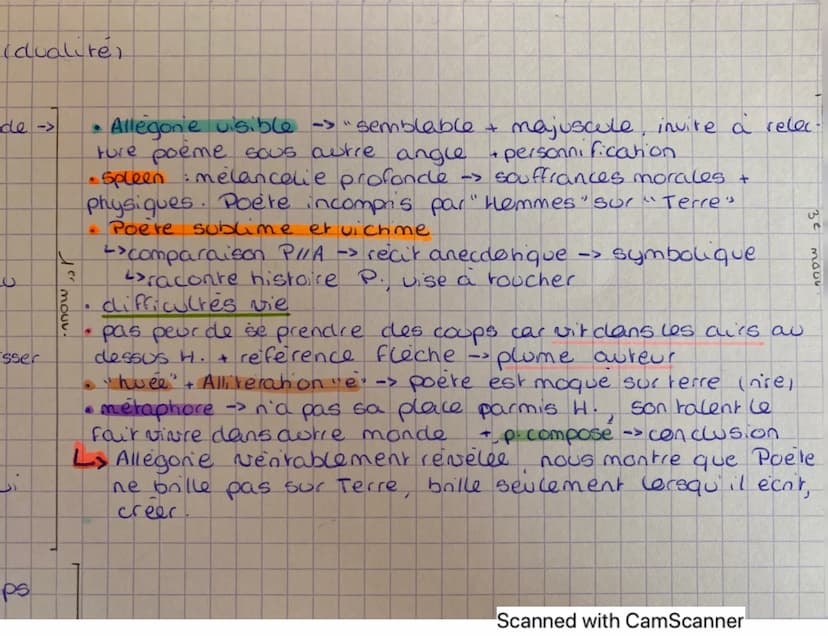 (dualité)
de -> • Allégorie visible -> "semblable + majuscule, invite à relec-
ture poème sous autre angle + personnification
• spleen : mélancolie profonde -> souffrances morales +
physiques. Poète incompris par "Hommes" sur "Terre"
• Poète sublime et victime
↳comparaison P//A -> récit anecdotique -> symbolique
↳raconte histoire P., vise à toucher
• difficultés vie
• pas peur de se prendre des coups car vit dans les airs au
sser dessus H. + référence flèche -> plume auteur
• "huée" + Allitération "é" -> poète est moqué sur terre (rire)
• métaphore -> n'a pas sa place parmis H., son talent le
fait vivre dans autre monde + p. composé -> conclusion
↳ Allégorie véritablement révélée, nous montre que Poète
ne brille pas sur Terre, brille seulement lorsqu'il écrit,
créer.
ps
1er mouv.
3e mouv
Scanned with CamScanner